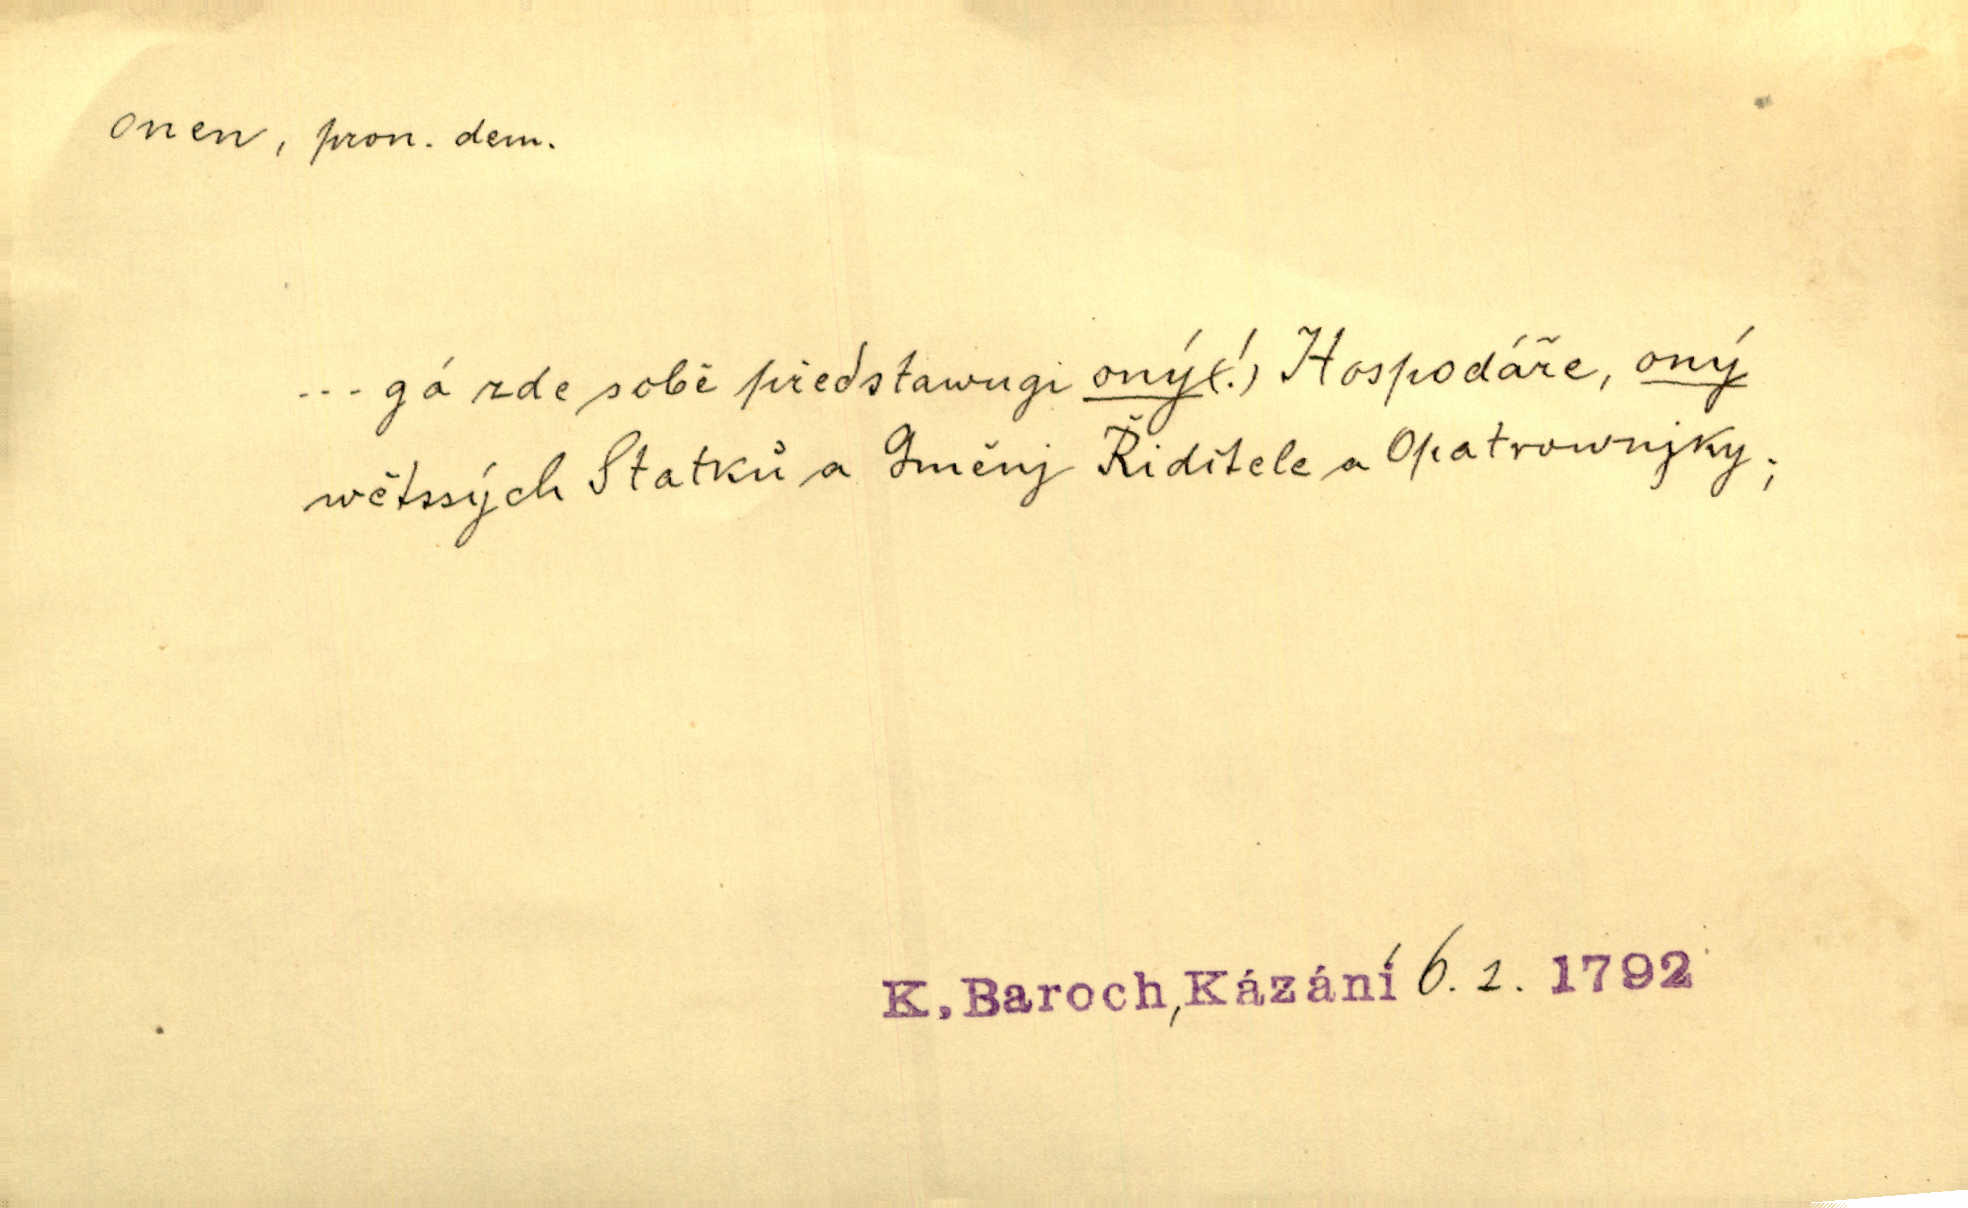 onen, pron. dem.
... gá zde sobě představugi oný(!) Hospodáře, oný
wětssých Statků a Gměnj Řiditele a Opatrownjky;
K. Baroch, Kázání 6. 2. 1792